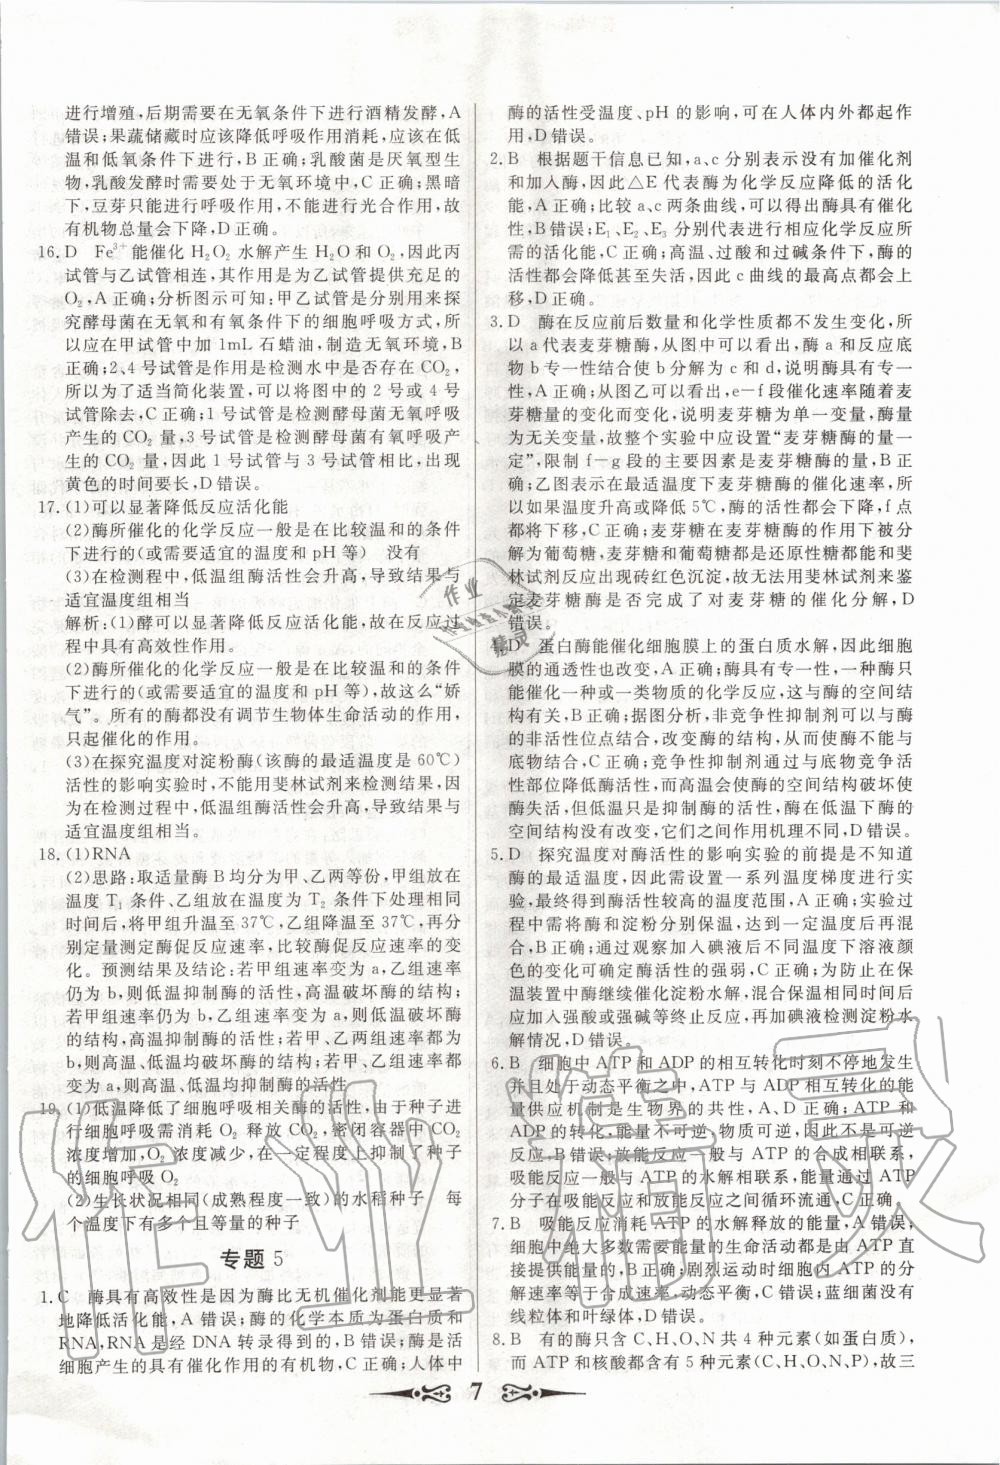 进行增殖,后期需要在无氧条件下进行酒精发酵,A
错误;果蔬储藏时应该降低呼吸作用消耗,应该在低
温和低氧条件下进行,B正确;乳酸菌是厌氧型生
物,乳酸发酵时需要处于无氧环境中,C正确;黑暗
下,豆芽只能进行呼吸作用,不能进行光合作用,故
有机物总量会下降,D正确。
16.D Fe³⁺能催化H₂O₂水解产生H₂O和O₂,因此丙
试管与乙试管相连,其作用是为乙试管提供充足的
O₂,A正确;分析图示可知:甲乙试管是分别用来探
究酵母菌在无氧和有氧条件下的细胞呼吸方式,所
以应在甲试管中加1mL石蜡油,制造无氧环境,B
正确;2、4号试管是用来检测水中是否存在CO₂,
所以为了适当简化装置,可以将图中的2号或4号
试管除去,C正确;1号试管是检测酵母菌无氧呼吸
产生的CO₂量,3号试管是检测酵母菌有氧呼吸产
生的CO₂量,因此1号试管与3号试管相比,出现
黄色的时间要长,D错误。
17.(1)可以显著降低反应活化能
(2)酶所催化的化学反应一般是在比较温和的条件
下进行的(或需要适宜的温度和pH等) 没有
(3)在检测程中,低温组酶活性会升高,导致结果与
适宜温度组相当
解析:(1)酵可以显著降低反应活化能,故在反应过
程中具有高效性作用。
(2)酶所催化的化学反应一般是在比较温和的条件
下进行的(或需要适宜的温度和pH等),故这么“娇
气”。所有的酶都没有调节生物体生命活动的作用,
只起催化的作用。
(3)在探究温度对淀粉酶(该酶的最适温度是60℃)
活性的影响实验时,不能用斐林试剂来检测结果,因
为在检测过程中,低温组酶活性会升高,导致结果与
适宜温度组相当。
18.(1)RNA
(2)思路:取适量酶B均分为甲、乙两等份,甲组放在
温度T₁条件、乙组放在温度为T₂条件下处理相同
时间后,将甲组升温至37℃,乙组降温至37℃,再分
别定量测定酶促反应速率,比较酶促反应速率的变
化。预测结果及结论:若甲组速率变为a,乙组速率
仍为b,则低温抑制酶的活性,高温破坏酶的结构;
若甲组速率仍为b,乙组速率变为a,则低温破坏酶
结构,高温抑制酶的活性;若甲、乙两组速率仍为b,
则高温、低温均破坏酶的结构;若甲、乙组速率都
变为a,则高温、低温均抑制酶的活性
19.(1)低温降低了细胞呼吸相关酶的活性,由于种子进
行细胞呼吸需消耗O₂释放CO₂,密闭容器中CO₂
浓度增加,O₂浓度减少,在一定程度上抑制了种子
的细胞呼吸O₂
(2)生长状况相同(成熟程度一致)的水稻种子 每
个温度下有多个且等量的种子
专题5
1.C 酶具有高效性是因为酶比无机催化剂能更显著
地降低活化能,A错误;酶的化学本质为蛋白质和
RNA,RNA是经DNA转录得到的,B错误;酶是活
细胞产生的具有催化作用的有机物,C正确;人体中
酶的活性受温度、pH的影响,可在人体内外都起作
用,D错误。
2.B 根据题干信息已知,a、c分别表示没有加催化剂
和加入酶,因此△E代表酶为化学反应降低的活化
能,A正确;比较a、c两条曲线,可以得出酶具有催化
性,B错误;E₁、E₂、E₃分别代表进行相应化学反应所
需的活化能,C正确;高温、过酸和过碱条件下,酶的
活性都会降低甚至失活,因此c曲线的最高点都会上
移,D正确。
3.D 酶在反应前后数量和化学性质都不发生变化,所
以a代表麦芽糖酶,从图中可以看出,a和反应底
物b专一性结合使b分解为c和d,说明酶具有专一
性,A正确;从图乙可以看出,e—f段催化速率随着麦
芽糖量的变化而变化,说明麦芽糖为单一变量,酶量
为无关变量,故整个实验中应设置“麦芽糖酶的量一
定”,限制f—g段的主要因素是麦芽糖酶的量,B正
确;乙图表示在最适温度下麦芽糖酶的催化速率,所
以如果温度升高或降低5℃,酶的活性都会下降,f点
都将下移,C正确;麦芽糖在麦芽糖酶的作用下被分
解为葡萄糖,麦芽糖和葡萄糖都是还原性糖都能和斐
林试剂反应出现砖红色沉淀,故无法用斐林试剂来鉴
定麦芽糖酶是否完成了对麦芽糖的催化分解,D
错误。
D 蛋白酶能催化细胞膜上的蛋白质水解,因此细胞
膜的通透性也改变,A正确;酶具有专一性,一种酶只
能催化一种或一类物质的化学反应,这与酶的空间结
构有关,B正确;据图分析,非竞争性抑制剂可以与酶
的非活性位点结合,改变酶的结构,从而使酶不能与
底物结合,C正确;竞争性抑制剂通过与底物竞争活
性部位降低酶活性,而高温会使酶的空间结构破坏使
酶失活,但低温只是抑制酶的活性,酶在低温下酶的
空间结构没有改变,它们之间作用机理不同,D错误。
5.D 探究温度对酶活性的影响实验的前提是不知道
酶的最适温度,因此需要设置一系列温度梯度进行实
验,最终得到酶活性较高的温度范围,A正确;实验过
程中需将酶和淀粉分别保温,达到一定温度后再混
合,B正确;通过观察加入碘液后不同温度下溶液颜
色的变化可确定酶活性的强弱,C正确;为防止在保
温装置中酶继续催化淀粉水解,混合保温相同时间后
应加入强酸或强碱等终止反应,再加碘液检测淀粉水
解情况,D错误。
6.B 细胞中ATP和ADP的相互转化时刻不停地发生
并且处于动态平衡之中,ATP与ADP相互转化的能
量供应机制是生物界的共性,A、D正确;ATP和
ADP的转化,能量不可逆,物质可逆,因此不是可逆
反应,B错误;放能反应一般与ATP的合成相联系,
吸能反应一般与ATP的水解相联系,能量通过ATP
分子在吸能反应和放能反应之间循环流通,C正确
7.B 吸能反应消耗ATP的水解释放的能量,A错误;
细胞中绝大多数需要能量的生命活动都是由ATP直
接提供能量的,B正确;剧烈运动时细胞中ATP的分
解速率等于合成速率,动态平衡,C错误;蓝细菌没有
线粒体和叶绿体,D错误。
8.B 有的酶只含C、H、O、N共4种元素(如蛋白质),
而ATP和核酸都含有5种元素(C、H、O、N、P),故三
7